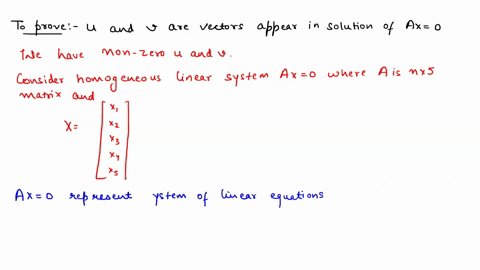 To prove:- u and v are vectors appear in solution of Ax=0
We have non-zero u and v.
Consider homogeneous linear system Ax=0 where A is nx5
matrix and
X= [x1
x2
x3
x4
x5]
Ax=0 represent ystem of linear equations